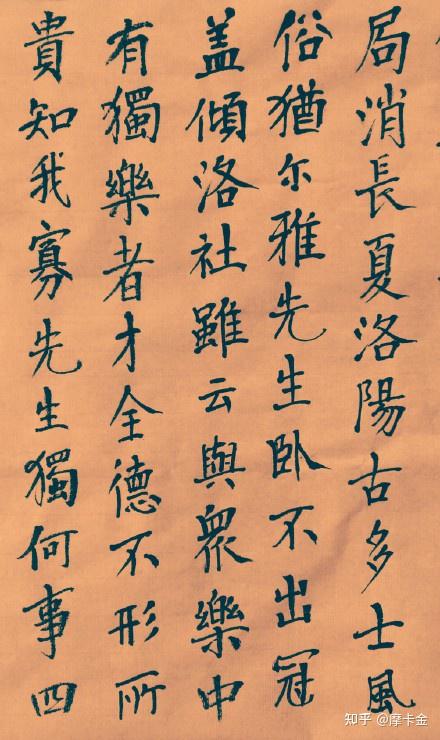 局消長夏洛陽古多士風
俗猶尔雅先生卧不出冠
盖傾洛社雖云與衆樂中
有獨樂者才全德不形所
貴知我寡先生獨何事四
知乎 @摩卡金